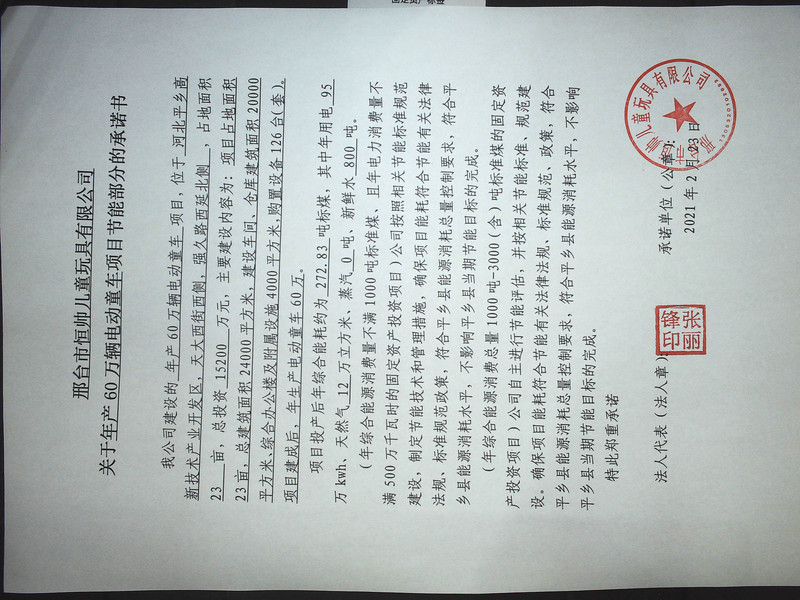 邢台市恒帅儿童玩具有限公司
关于年产60万辆电动童车项目节能部分的承诺书
我公司建设的 年产60万辆电动童车 项目,位于 河北平乡高
新技术产业开发区,天大西街西侧,强久路西延北侧 ,占地面积
23 亩,总投资 15200 万元,主要建设内容为:项目占地面积
23亩,总建筑面积24000平方米,建设车间、仓库建筑面积20000
平方米、综合办公楼及附属设施4000平方米,购置设备126台(套)。
项目建成后,年生产电动童车60万。
项目投产后年综合能耗约为 272.83 吨标煤,其中年用电 95
万kwh、天然气 12 万立方米、蒸汽 0 吨、新鲜水 800 吨。
(年综合能源消费量不满1000吨标准煤、且年电力消费量不
满500万千瓦时的固定资产投资项目)公司按照相关节能标准规范
建设,制定节能技术和管理措施,确保项目能耗符合节能有关法律
法规、标准规范政策,符合平乡县能源消耗总量控制要求,符合平
乡县能源消耗水平,不影响平乡县当期节能目标的完成。
(年综合能源消费总量1000吨-3000(含)吨标准煤的固定资
产投资项目)公司自主进行节能评估,并按相关节能标准、规范建
设。确保项目能耗符合节能有关法律法规、标准规范、政策,符合
平乡县能源消耗总量控制要求,符合平乡县能源消耗水平,不影响
平乡县当期节能目标的完成。
特此郑重承诺
承诺单位(公章):
法人代表(法人章):
2021年2月23日
帅儿童玩具有限公司